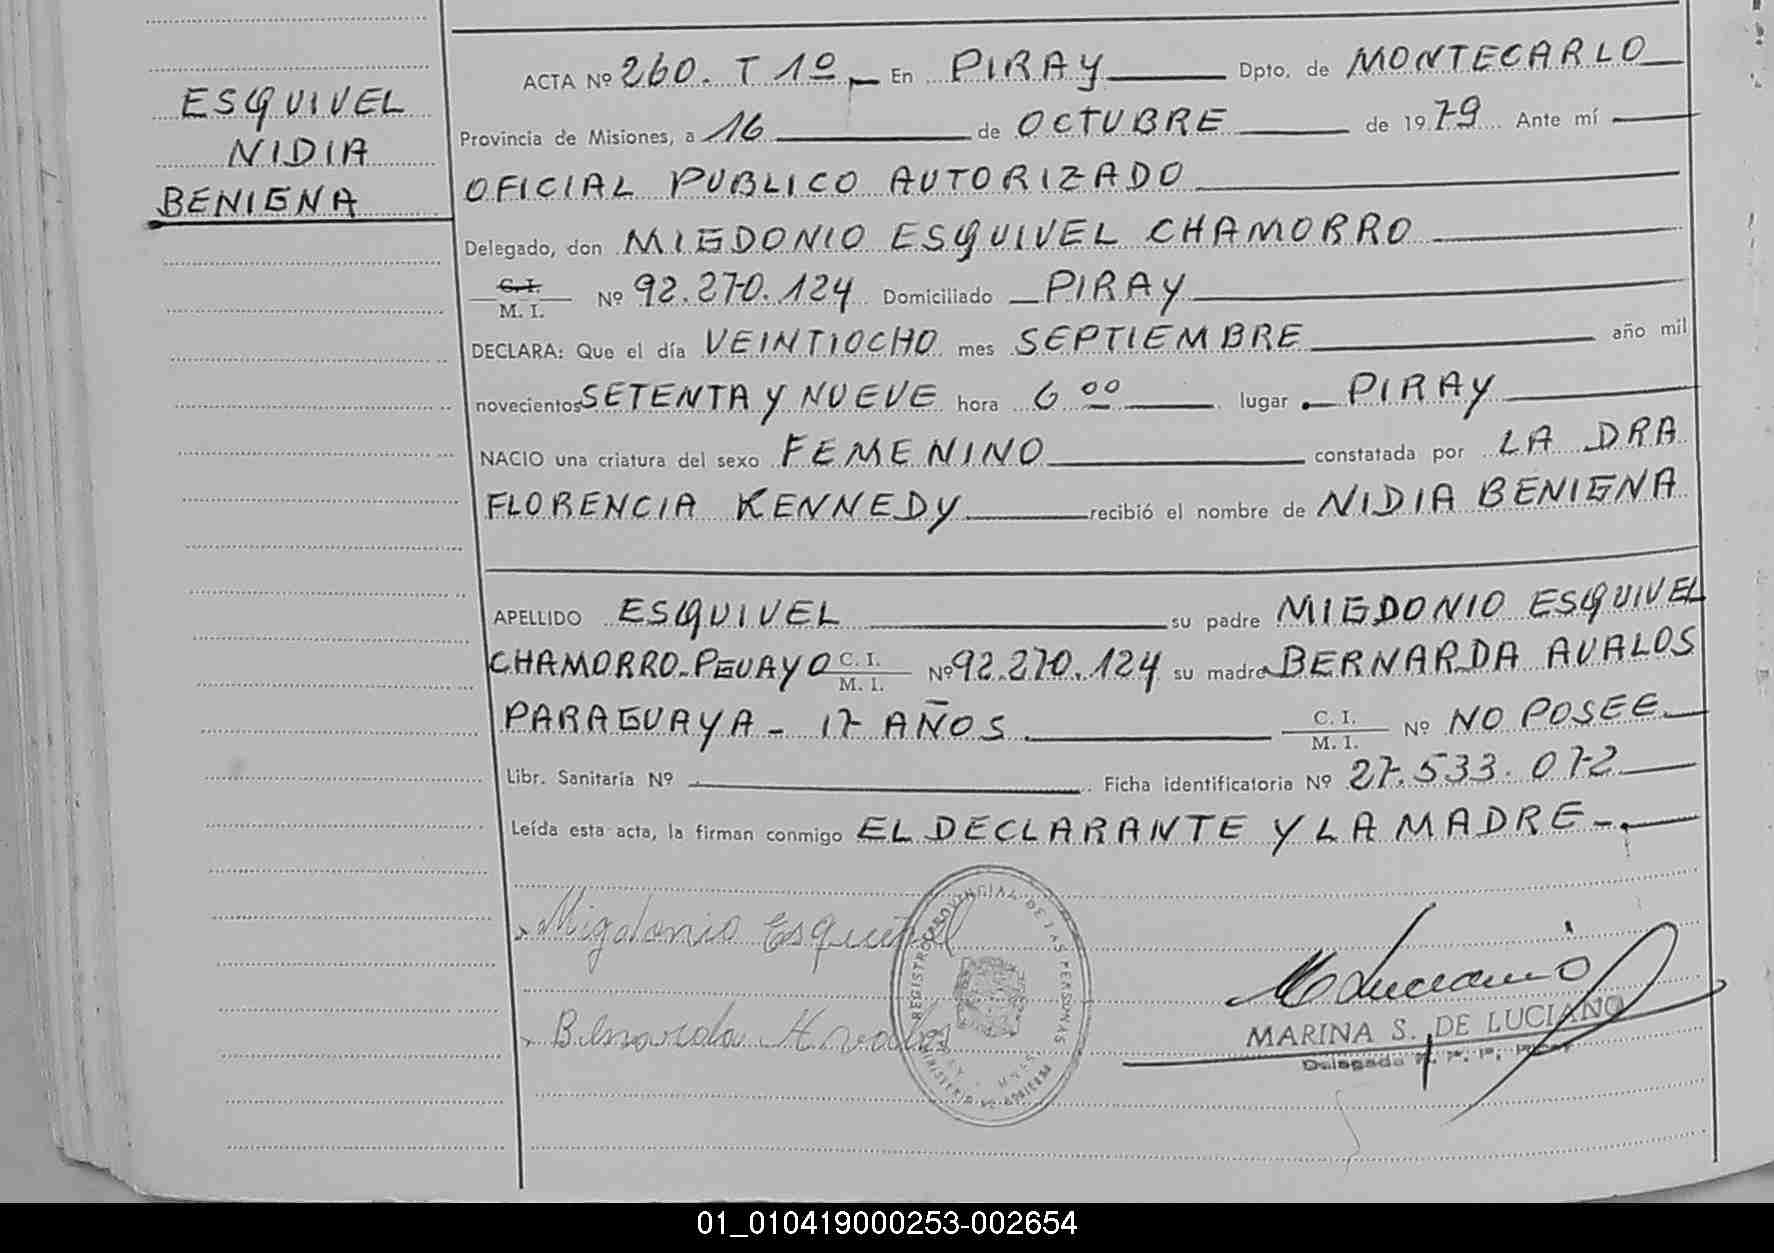 ESQUIVEL
NIDIA
BENIGNA
ACTA Nº 260. T 1º. En PIRAY Dpto. de MONTECARLO
Provincia de Misiones, a 16 de OCTUBRE de 1979 Ante mí
OFICIAL PUBLICO AUTORIZADO
Delegado, don MIGDONIO ESQUIVEL CHAMORRO
C. I.
M. I. Nº 92.270.124 Domiciliado PIRAY
DECLARA: Que el día VEINTIOCHO mes SEPTIEMBRE año mil
novecientos SETENTA Y NUEVE hora 6 00 lugar PIRAY
NACIO una criatura del sexo FEMENINO constatada por LA DRA
FLORENCIA KENNEDY recibió el nombre de NIDIA BENIGNA
APELLIDO ESQUIVEL su padre MIGDONIO ESQUIVEL
CHAMORRO- C. I. M. I. Nº 92.270.124 su madre BERNARDA AVALOS
PARAGUAYA - 17 AÑOS C. I. M. I. Nº NO POSEE
Libr. Sanitaria Nº Ficha identificatoria Nº 27.533.072
Leída esta acta, la firman conmigo EL DECLARANTE Y LA MADRE -.
Migdonio Esquivel
Bernarda Avalos
REGISTRO PROVINCIAL DE LAS PERSONAS
MINISTERIO DE GOBIERNO
M Luciano
MARINA S. DE LUCIANO
Delegada
01_010419000253-002654